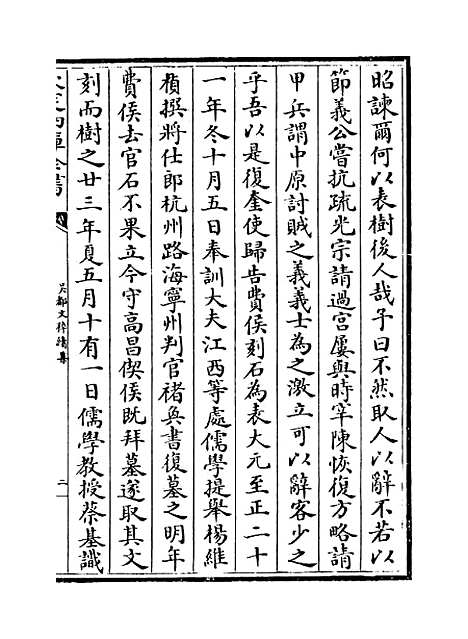 昭諫爾何以表樹後人哉予曰不然取人以辭不若以
節義公嘗抗疏光宗請過宮屢與時宰陳恢復方略請
甲兵謂中原討賊之義義士為之激立可以辭客少之
乎吾以是復奎使歸告費侯刻石為表大元至正二十
一年冬十月五日奉訓大夫江西等處儒學提舉楊維
楨撰將仕郎杭州路海寧州判官褚奐書復墓之明年
費侯去官石不果立今守高昌偰侯既拜墓遂取其文
刻而樹之廿三年夏五月十有一日儒學教授蔡基識
吳都文粹續集
二